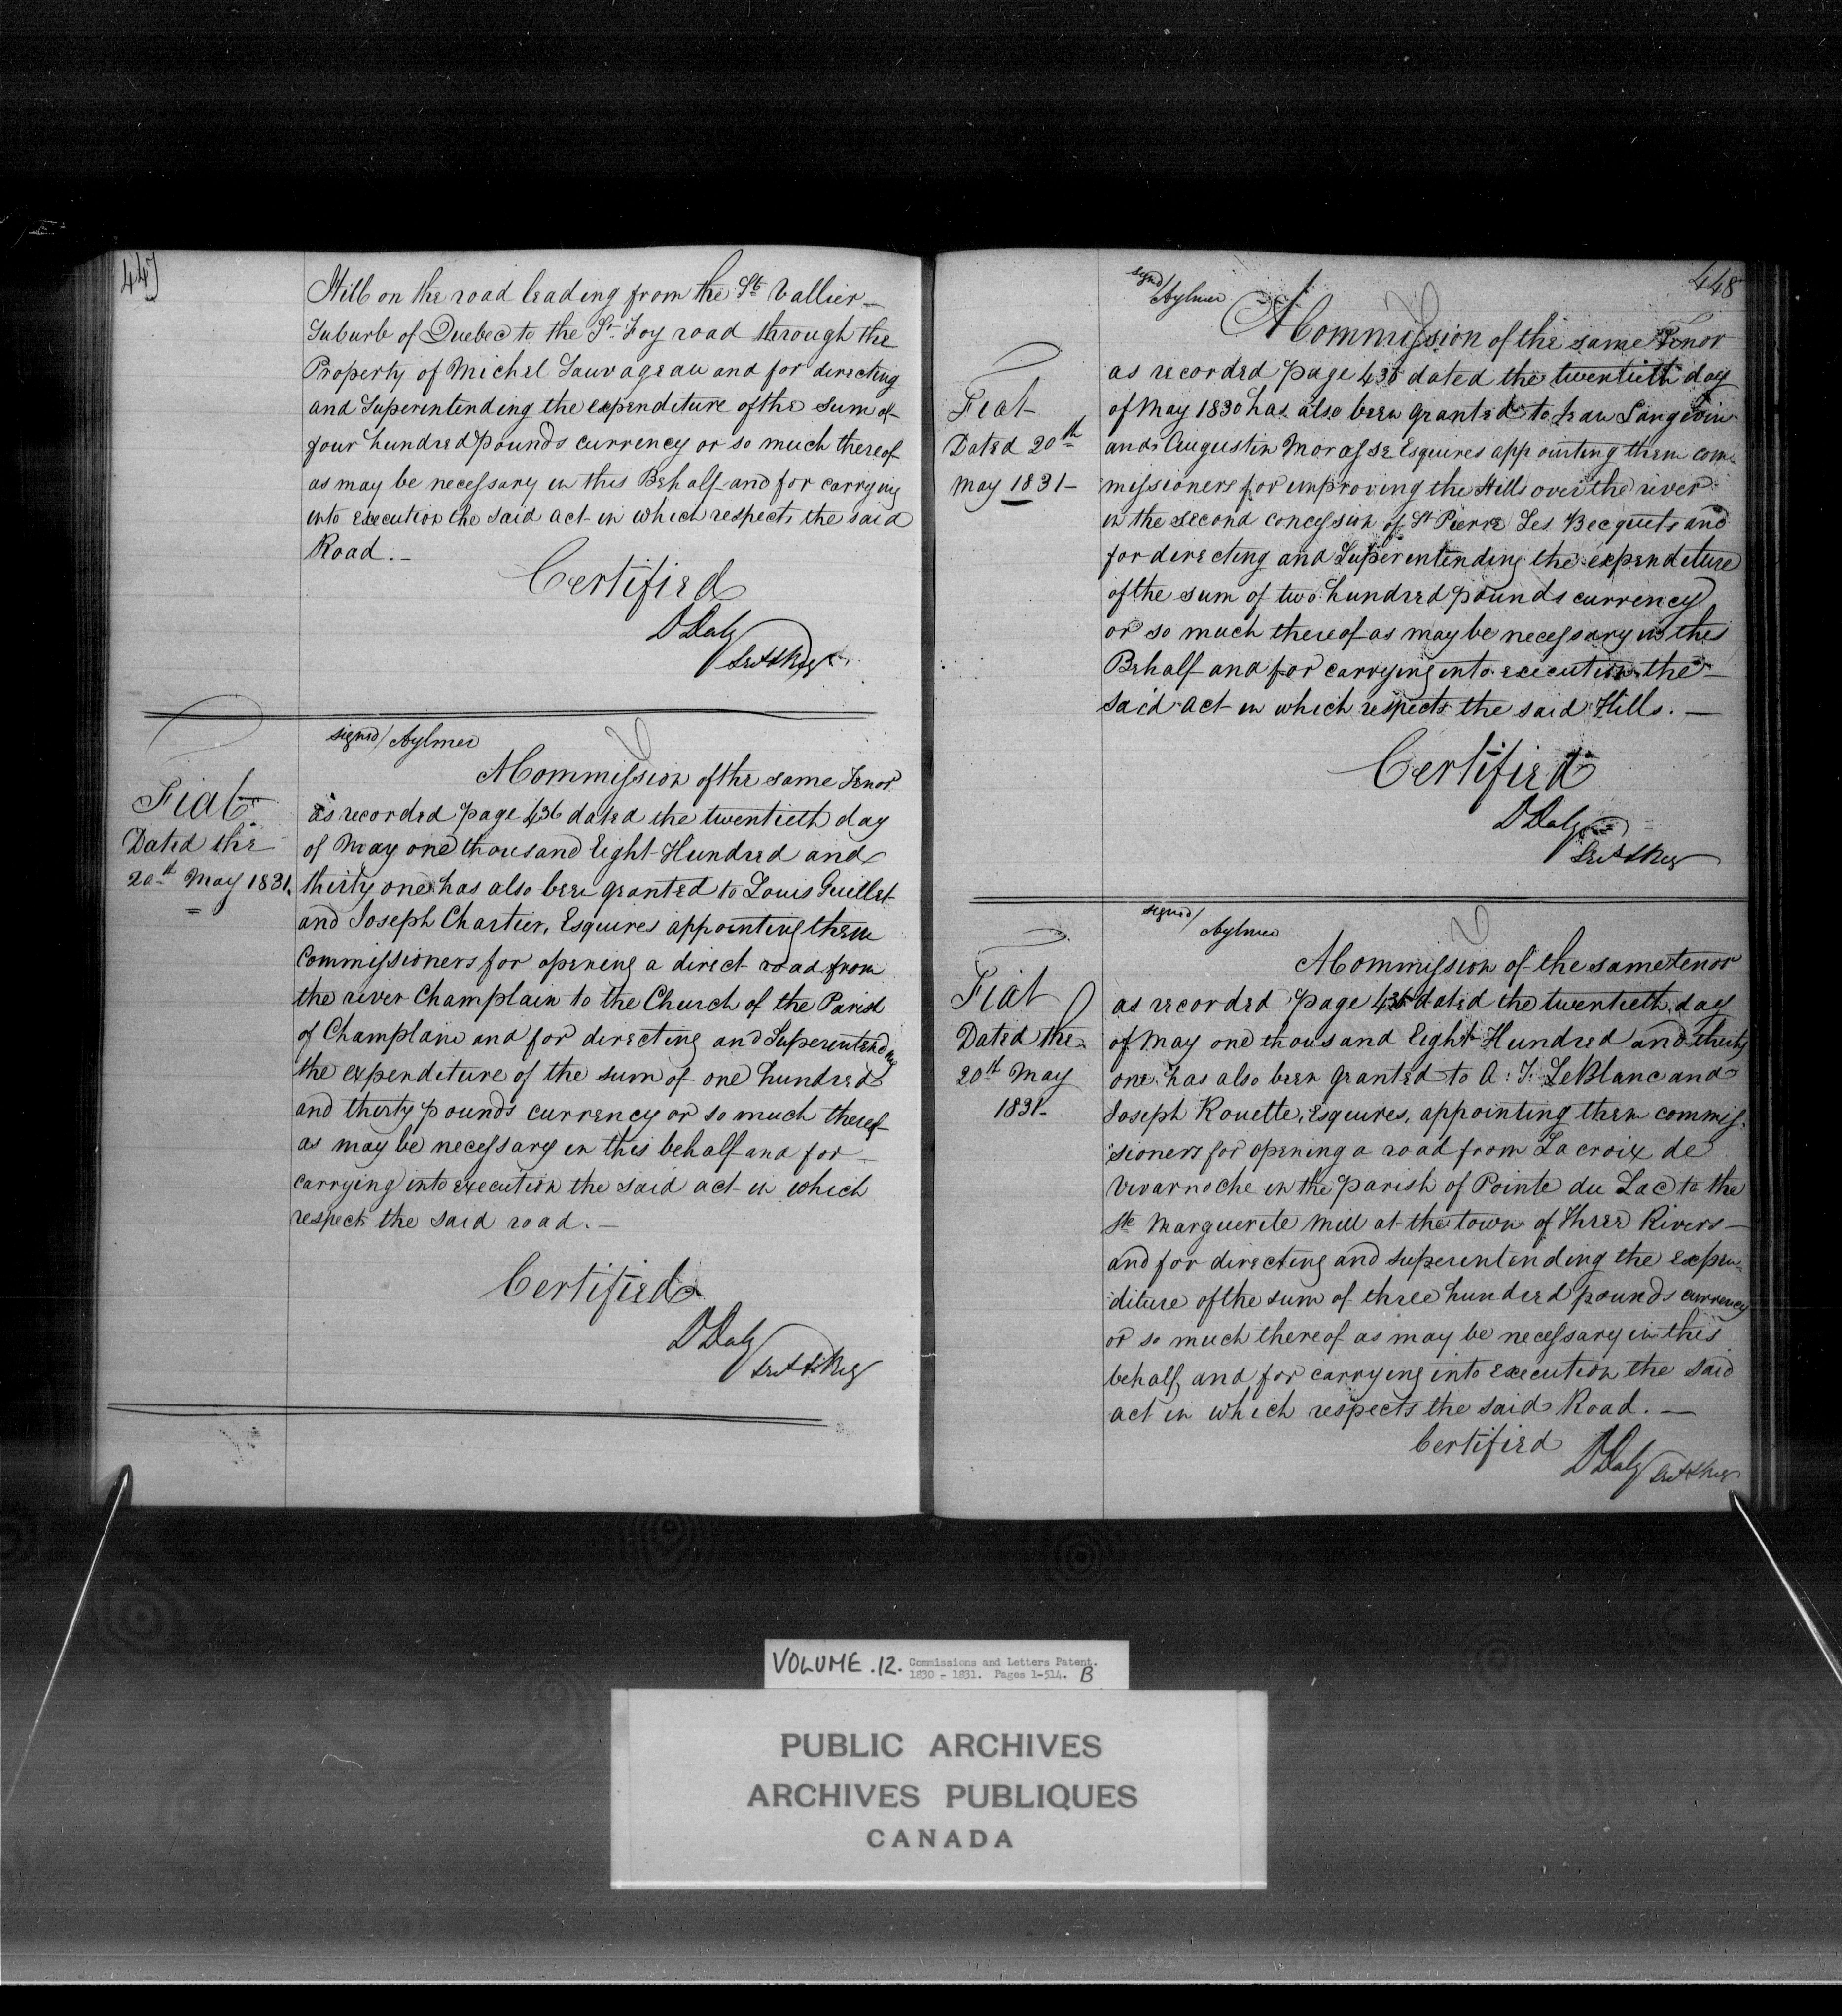 447
Hill on the road leading from the St Vallier
Suburb of Quebec to the St Foy road through the
Property of Michel Sauvageau and for directing
and Superintending the expenditure of the sum of
four hundred pounds currency or so much thereof
as may be necessary in this Behalf and for carrying
into execution the said act in which respects the said
Road.
Certified
D Daly
Sec & Reg
signed/ Aylmer
Fiat
Dated the
20th May 1831.
A Commission of the same Tenor
as recorded page 436 dated the twentieth day
of May one thousand Eight Hundred and
thirty one has also been granted to Louis Guillet
and Joseph Chartier, Esquires appointing them
Commissioners for opening a direct road from
the river Champlain to the Church of the Parish
of Champlain and for directing and Superintending
the expenditure of the sum of one hundred
and thirty pounds currency or so much thereof
as may be necessary in this behalf and for
carrying into execution the said act in which
respects the said road.
Certified
D Daly
Sec & Reg
448
signd/
Aylmer
Fiat
Dated 20th
May 1831
A Commission of the same Tenor
as recorded page 436 dated the twentieth day
of May 1830 has also been granted to Jean Langevin
and Augustin Morasse Esquires appointing them com-
missioners for improving the Hills over the river
in the second concession of St Pierre Les Becquets and
for directing and Superintending the expenditure
of the sum of two hundred pounds currency
or so much thereof as may be necessary in this
Behalf and for carrying into execution the
said act in which respects the said Hills.
Certified
D Daly
Sec & Reg
signed/
Aylmer
Fiat
Dated the
20th May
1831
A Commission of the same tenor
as recorded page 436 dated the twentieth day
of May one thousand Eight Hundred and thirty
one has also been granted to A: T: LeBlanc and
Joseph Rouette, Esquires, appointing them commis-
sioners for opening a road from La croix de
in the parish of Pointe du Lac to the
Ste Marguerite Mill at the town of Three Rivers
and for directing and superintending the expen-
diture of the sum of three hundred pounds currency
or so much thereof as may be necessary in this
behalf, and for carrying into execution the said
act in which respects the said Road.
Certified
D Daly Sec & Reg
VOLUME .12. Commissions and Letters Patent.
1830 - 1831. Pages 1-514. B
PUBLIC ARCHIVES
ARCHIVES PUBLIQUES
CANADA